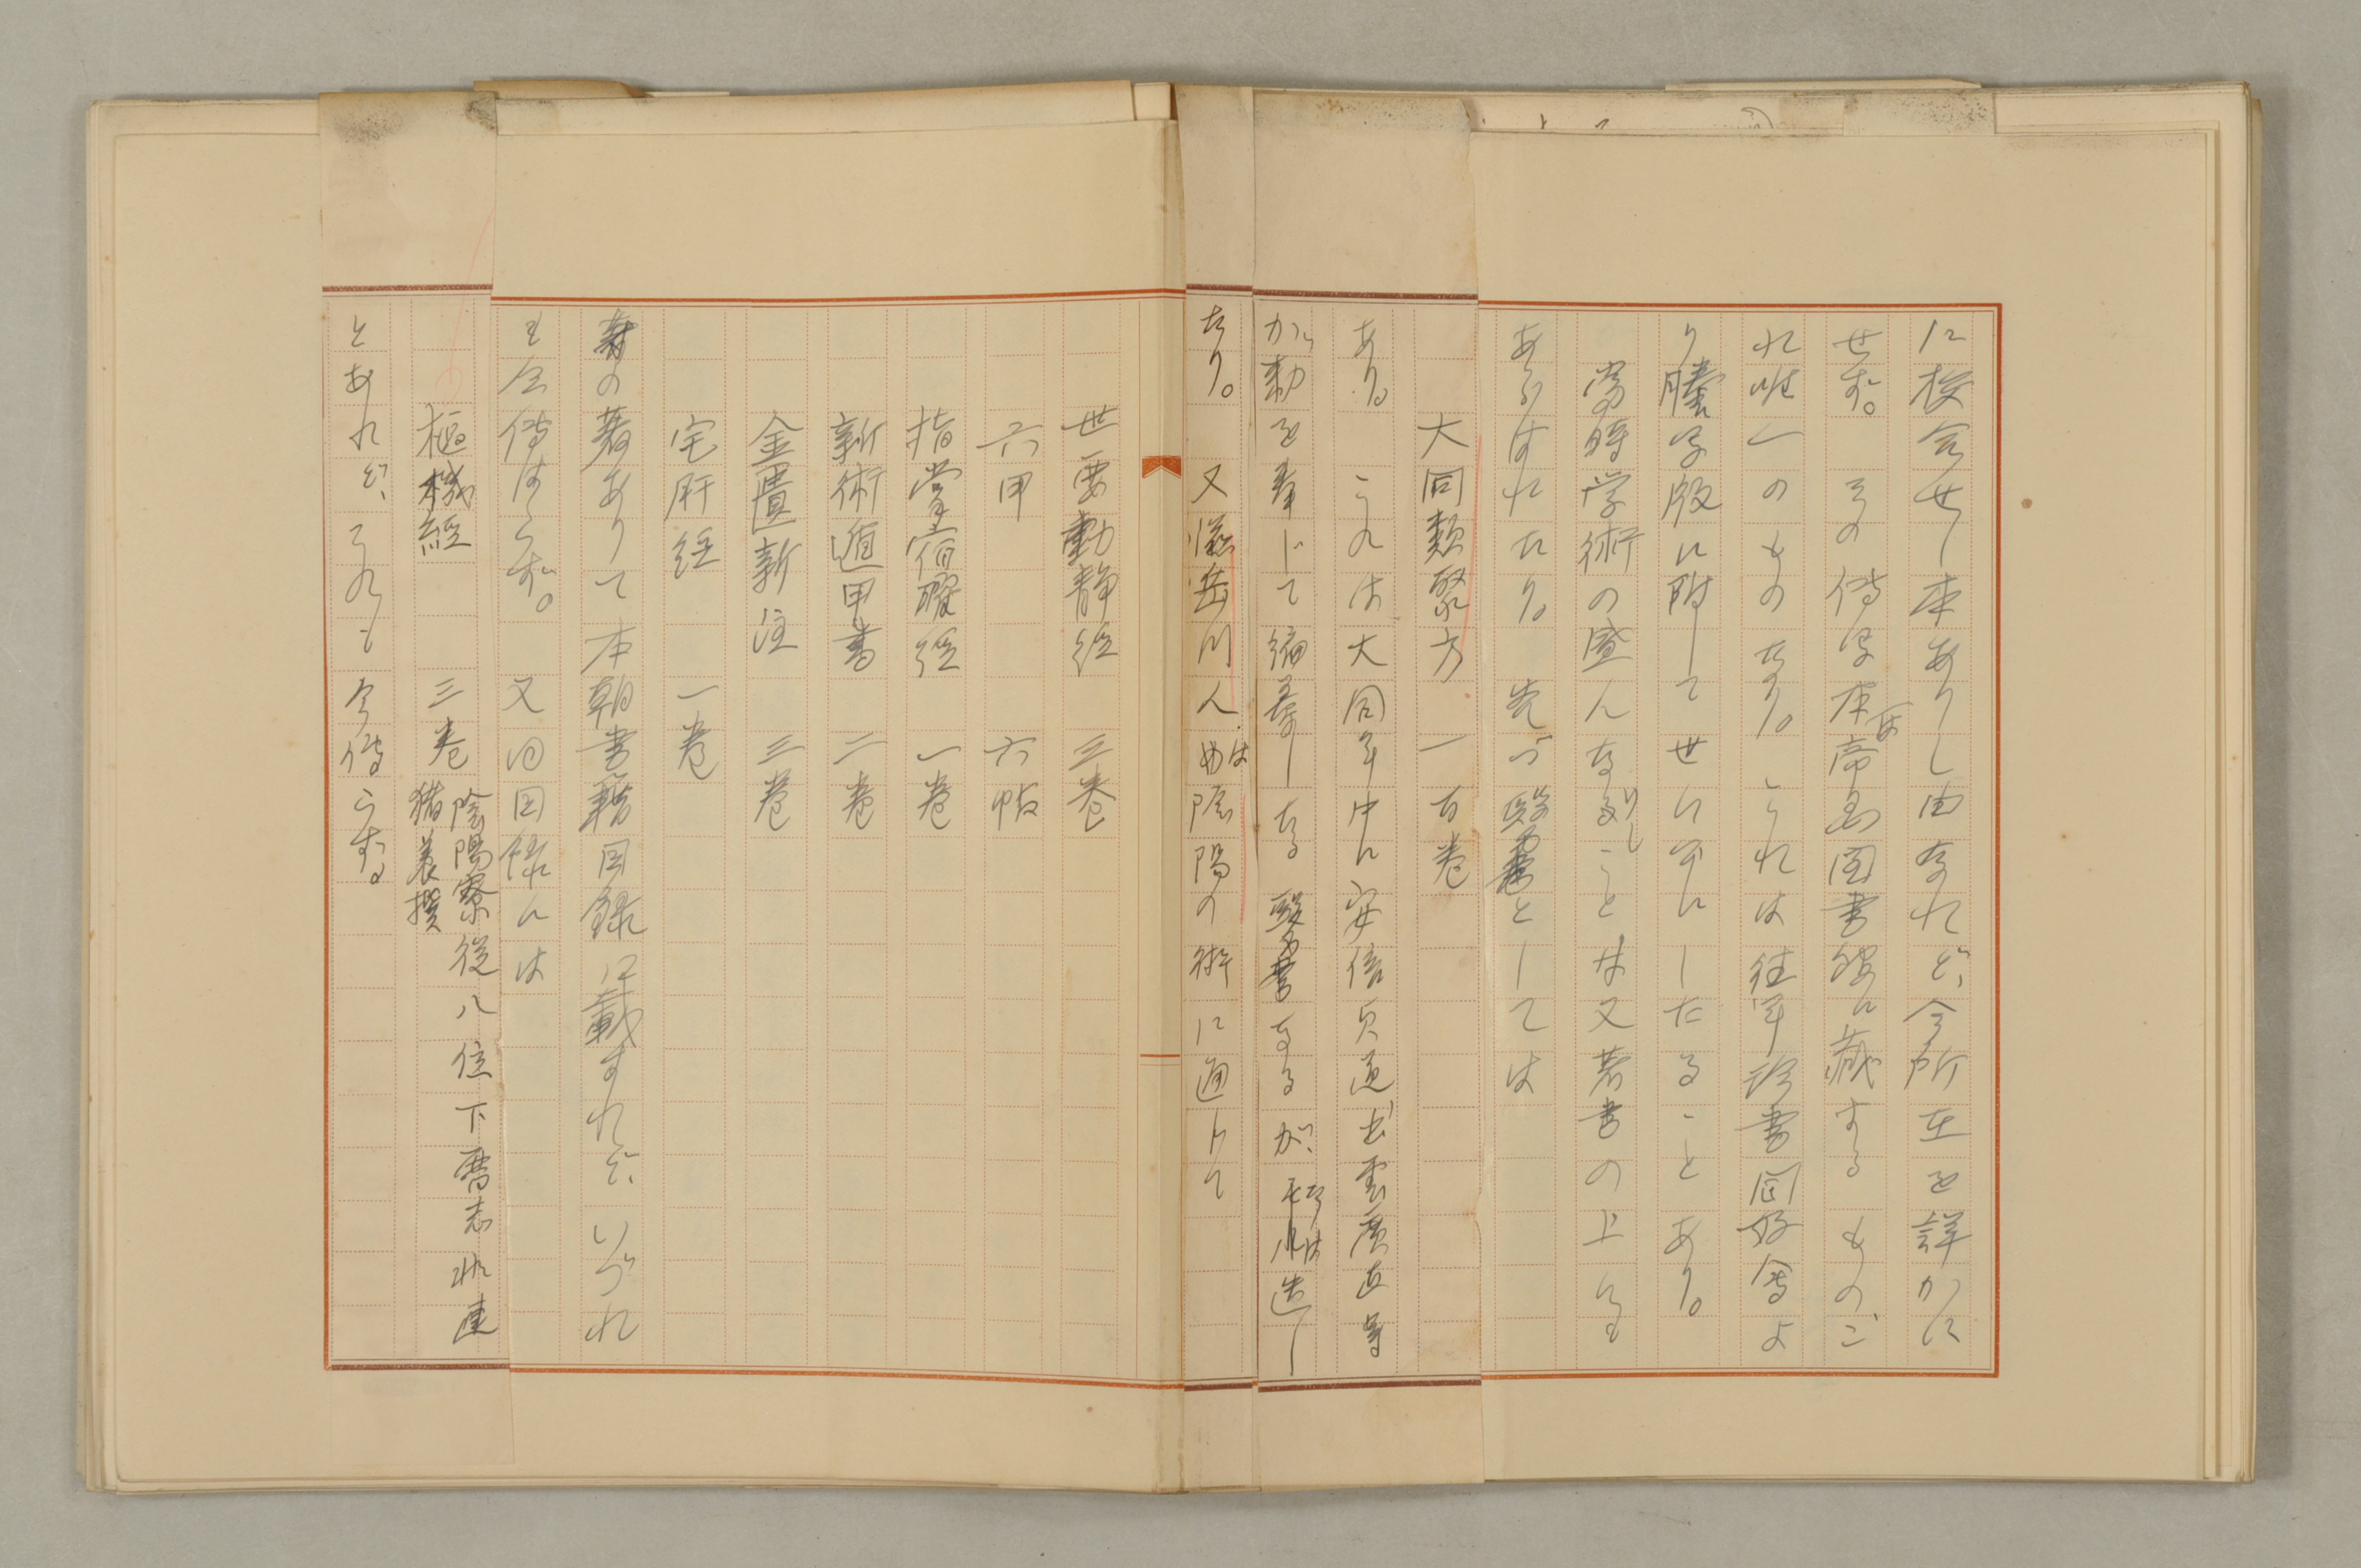 に校合せし本ありし由なれど、今所在を詳かに
せず。その傳写本、帝国図書館に蔵するもの、こ
れ唯一のものなり。これは往年珍書同好会よ
り謄写版に附して世に公にしたることあり。
當時学術の盛んなりしことは又著書の上にも
あらはれたり。先づ醫書としては
大同類聚方 一百巻
あり。これは大同年中に安倍真道出雲廣貞等
が、勅を奉じて編纂しなる醫書なるが、
なり。又滋岳川人は陰陽の術に通じて
世要動静経 三巻
六甲 六帖
指掌宿曜経 一巻
新術遁甲書 二巻
金匱新注 三巻
宅肝経 一巻
等の著ありて本朝書籍目録に載すれど、いづれ
も今傳はらず。又同目録には
枢機経 三巻 陰陽寮従八位下暦志斐連猪養撰
とあれど、これも今傳らず。